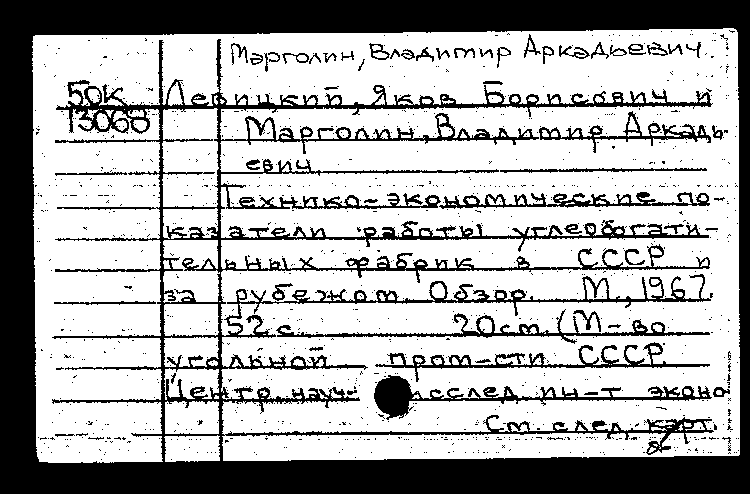 Марголин, Владимир Аркадьевич.
50к Левицкий, Яков Борисович и
13068 Марголин, Владимир Аркадь-
евич.
Технико-экономические по-
казатели работы углеобогати-
тельных фабрик в СССР и
за рубежом. Обзор. М., 1967.
52 с. 20см. (М-во
угольной пром-сти СССР.
Центр. науч- исслед. ин-т эконо
См. след. карт.